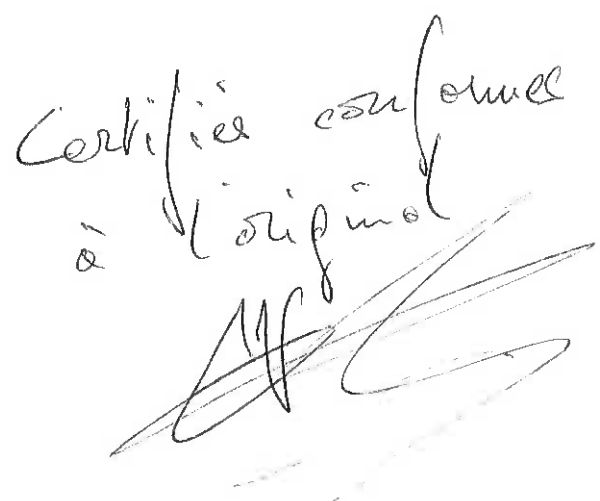 Certifiés conformes
à l'original